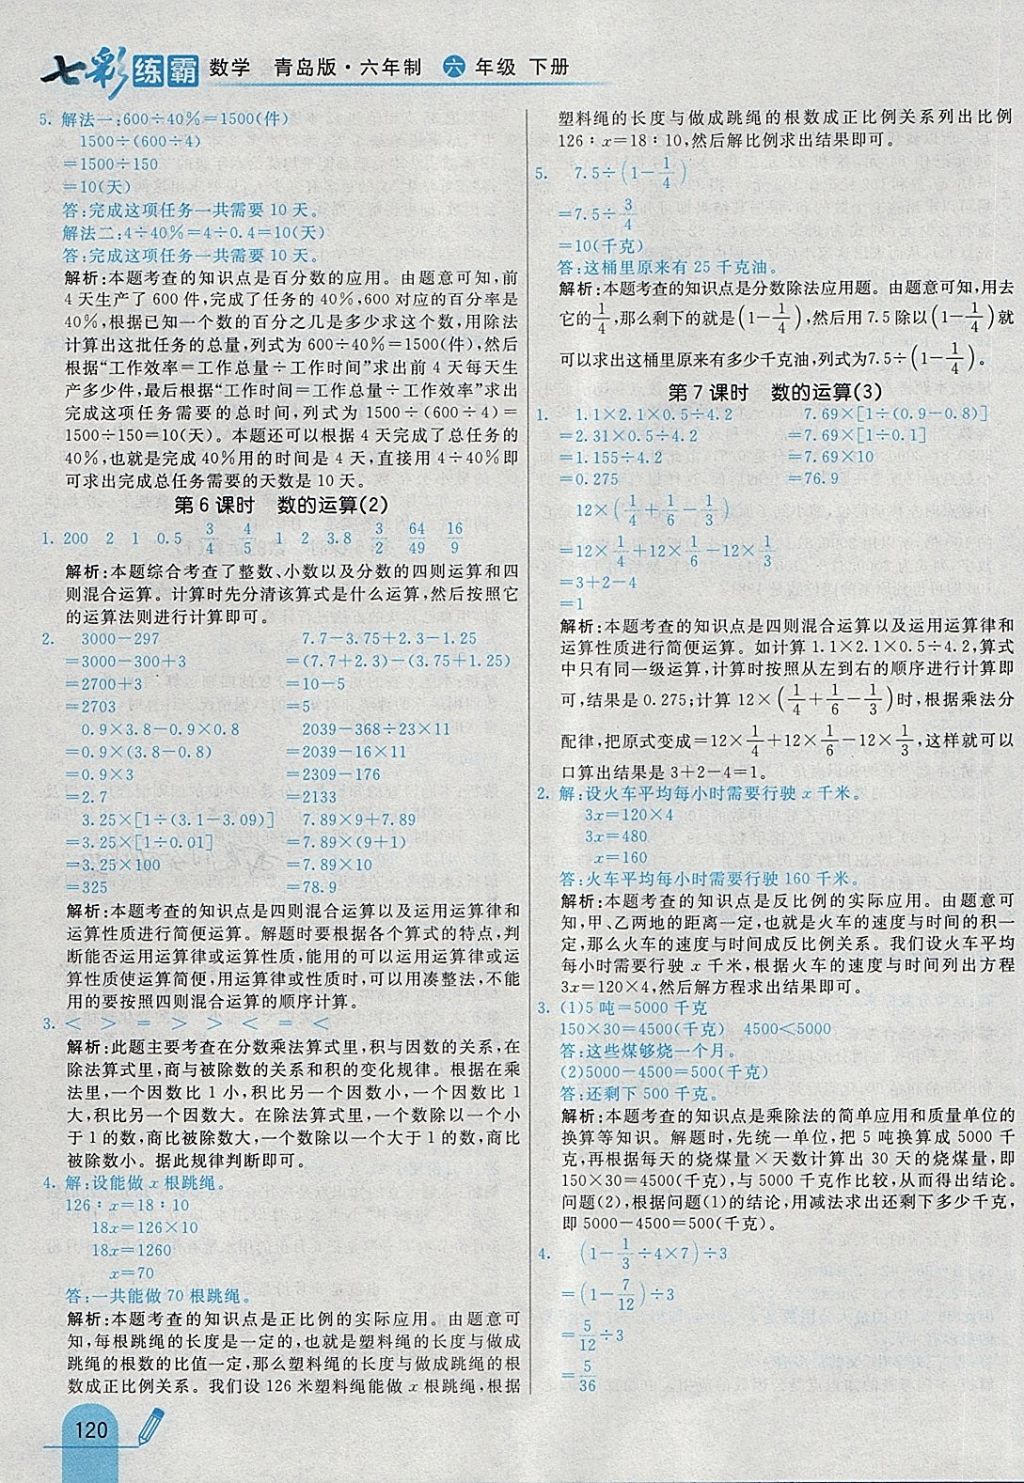 七彩练霸 数学 青岛版·六年制 六年级 下册
5. 解法一:600÷40%=1500(件)
1500÷(600÷4)
=1500÷150
=10(天)
答:完成这项任务一共需要 10 天。
解法二:4÷40%=4÷0.4=10(天)
答:完成这项任务一共需要 10 天。
解析:本题考查的知识点是百分数的应用。由题意可知,前
4 天生产了 600 件,完成了任务的 40%,600 对应的百分率是
40%,根据已知一个数的百分之几是多少求这个数,用除法
计算出这批任务的总量,列式为 600÷40%=1500(件),然后
根据“工作效率=工作总量÷工作时间”求出前 4 天每天生
产多少件,最后根据“工作时间=工作总量÷工作效率”求出
完成这项任务需要的总时间,列式为 1500÷(600÷4)=
1500÷150=10(天)。本题还可以根据 4 天完成了总任务的
40%,也就是完成 40%用的时间是 4 天,直接用 4÷40%即
可求出完成总任务需要的天数是 10 天。
第 6 课时 数的运算(2)
1. 200 2 1 0.5 3/4 4/5 1 2 3.8 3/2 64/49 16/9
解析:本题综合考查了整数、小数以及分数的四则运算和四
则混合运算。计算时先分清该算式是什么运算,然后按照它
的运算法则进行计算即可。
2. 3000-297 7.7-3.75+2.3-1.25
=3000-300+3 =(7.7+2.3)-(3.75+1.25)
=2700+3 =10-5
=2703 =5
0.9×3.8-0.9×0.8 2039-368÷23×11
=0.9×(3.8-0.8) =2039-16×11
=0.9×3 =2309-176
=2.7 =2133
3.25×[1÷(3.1-3.09)] 7.89×9+7.89
=3.25×[1÷0.01] =7.89×(9+1)
=3.25×100 =7.89×10
=325 =78.9
解析:本题考查的知识点是四则混合运算以及运用运算律和
运算性质进行简便运算。解题时要根据各个算式的特点,判
断能否运用运算律或运算性质,能用的可以运用运算律或运
算性质使运算简便,用运算律或性质时,可以用凑整法,不能
用的要按照四则混合运算的顺序计算。
3. < > = > > < = <
解析:此题主要考查在分数乘法算式里,积与因数的关系,在
除法算式里,商与被除数的关系和积的变化规律。根据在乘
法里,一个因数比 1 小,积比另一个因数小,一个因数比 1
大,积比另一个因数大。在除法算式里,一个数除以一个小
于 1 的数,商比被除数大,一个数除以一个大于 1 的数,商比
被除数小。据此规律判断即可。
4. 解:设能做 x 根跳绳。
126∶x=18∶10
18x=126×10
18x=1260
x=70
答:一共能做 70 根跳绳。
解析:本题考查的知识点是正比例的实际应用。由题意可
知,每根跳绳的长度是一定的,也就是塑料绳的长度与做成
跳绳的根数的比值一定,那么塑料绳的长度与做成跳绳的根
数成正比例关系。我们设 126 米塑料绳能做 x 根跳绳,根据
塑料绳的长度与做成跳绳的根数成正比例关系列出比例
126∶x=18∶10,然后解比例求出结果即可。
5. 7.5÷(1-1/4)
=7.5÷3/4
=10(千克)
答:这桶里原来有 25 千克油。
解析:本题考查的知识点是分数除法应用题。由题意可知,用去
它的1/4,那么剩下的就是(1-1/4),然后用 7.5 除以(1-1/4)就
可以求出这桶里原来有多少千克油,列式为7.5÷(1-1/4)。
第 7 课时 数的运算(3)
1. 1.1×2.1×0.5÷4.2 7.69×[1÷(0.9-0.8)]
=2.31×0.5÷4.2 =7.69×[1÷0.1]
=1.155÷4.2 =7.69×10
=0.275 =76.9
12×(1/4+1/6-1/3)
=12×1/4+12×1/6-12×1/3
=3+2-4
=1
解析:本题考查的知识点是四则混合运算以及运用运算律和
运算性质进行简便运算。如计算 1.1×2.1×0.5÷4.2,算式
中只有同一级运算,计算时按照从左到右的顺序进行计算即
可,结果是 0.275;计算 12×(1/4+1/6-1/3)时,根据乘法分
配律,把原式变成=12×1/4+12×1/6-12×1/3,这样就可以
口算出结果是 3+2-4=1。
2. 解:设火车平均每小时需要行驶 x 千米。
3x=120×4
3x=480
x=160
答:火车平均每小时需要行驶 160 千米。
解析:本题考查的知识点是反比例的实际应用。由题意可
知,甲、乙两地的距离一定,也就是火车的速度与时间的积一
定,那么火车的速度与时间成反比例关系。我们设火车平均
每小时需要行驶 x 千米,根据火车的速度与时间列出方程
3x=120×4,然后解方程求出结果即可。
3. (1)5 吨=5000 千克
150×30=4500(千克) 4500<5000
答:这些煤够烧一个月。
(2)5000-4500=500(千克)
答:还剩下 500 千克。
解析:本题考查的知识点是乘除法的简单应用和质量单位的
换算等知识。解题时,先统一单位,把 5 吨换算成 5000 千
克,再根据每天的烧煤量×天数计算出 30 天的烧煤量,即
150×30=4500(千克),与 5000 千克作比较,从而得出结论。
问题(2),根据问题(1)的结论,用减法求出还剩下多少千克,
即 5000-4500=500(千克)。
4. (1-1/3÷4×7)÷3
=(1-7/12)÷3
=5/12÷3
=5/36
120